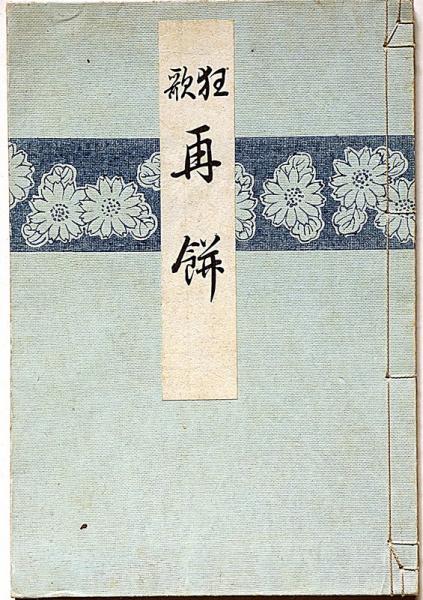 狂歌
再餅